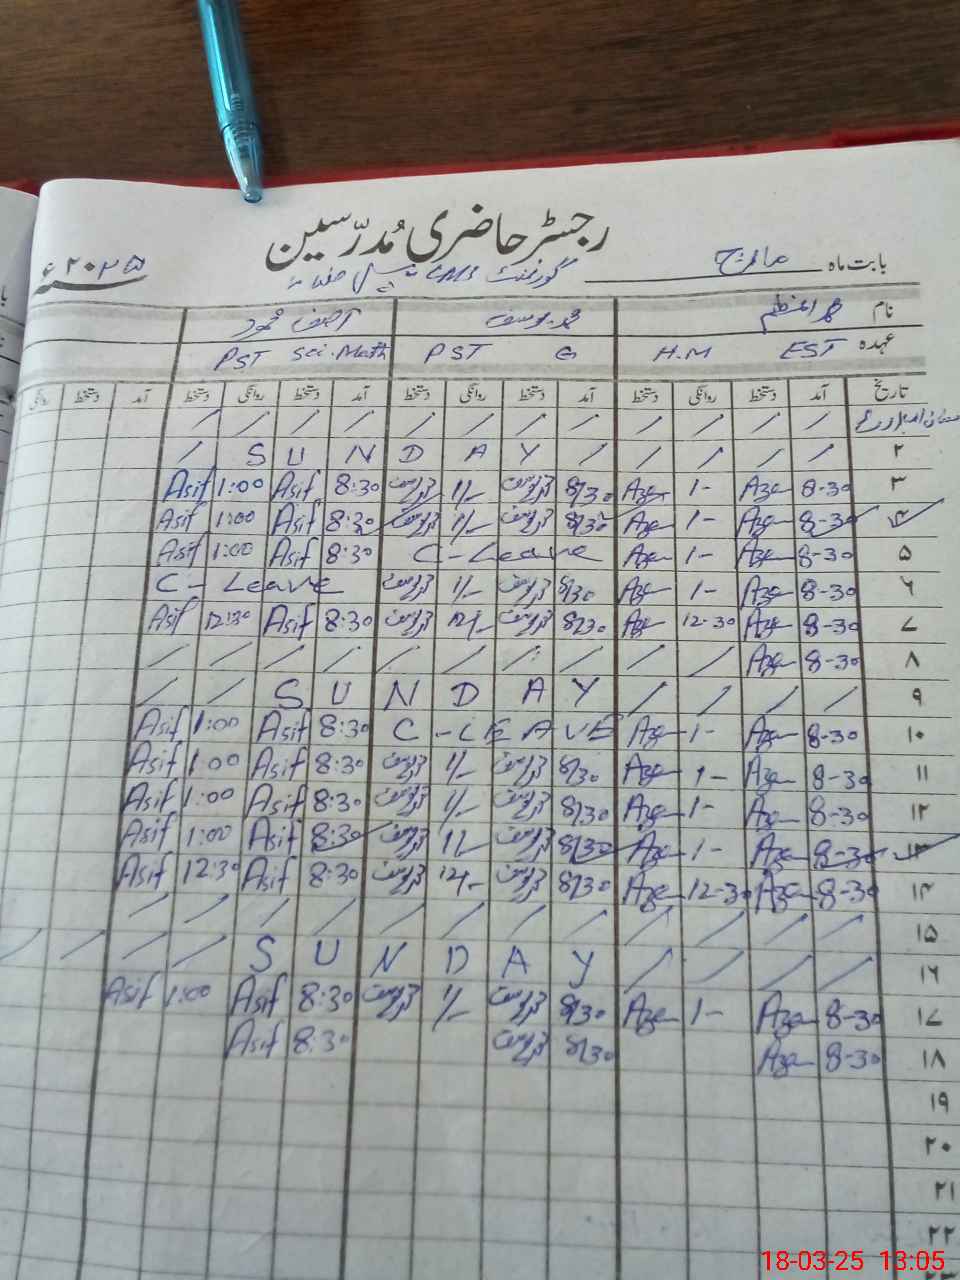 رجسٹر حاضری مُدرّسین
بابت ماہ مارچ ۲۰۲۵ء
گورنمنٹ
نام محمد یوسف آصف محمود
عہدہ EST H.M G PST Sci. Math PST
تاریخ آمد دستخط روانگی دستخط آمد دستخط روانگی دستخط آمد دستخط روانگی دستخط آمد دستخط روانگی
۲ S U N D A Y
۳ 8-30 Aze 1- Aze 8/30 محمد یوسف 1/- محمد یوسف 8:30 Asif 1:00 Asif
۴ 8-30 Aze 1- Aze 8/30 محمد یوسف 1/- محمد یوسف 8:30 Asif 1:00 Asif
۵ 8-30 Aze 1- Aze C-Leave 8:30 Asif 1:00 Asif
۶ 8-30 Aze 1- Aze 8/30 محمد یوسف 1/- محمد یوسف C-Leave
۷ 8-30 Aze 12-30 Aze 8/30 محمد یوسف 12/- محمد یوسف 8:30 Asif 12:30 Asif
۸ 8-30 Aze
۹ S U N D A Y
۱۰ 8-30 Aze 1- Aze C-LEAVE 8:30 Asif 1:00 Asif
۱۱ 8-30 Aze 1- Aze 8/30 محمد یوسف 1/- محمد یوسف 8:30 Asif 1:00 Asif
۱۲ 8-30 Aze 1- Aze 8/30 محمد یوسف 1/- محمد یوسف 8:30 Asif 1:00 Asif
۱۳ 8-30 Aze 1- Aze 8/30 محمد یوسف 1/- محمد یوسف 8:30 Asif 1:00 Asif
۱۴ 8-30 Aze 12-30 Aze 8/30 محمد یوسف 12/- محمد یوسف 8:30 Asif 12:30 Asif
۱۵
۱۶ S U N D A Y
۱۷ 8-30 Aze 1- Aze 8/30 محمد یوسف 1/- محمد یوسف 8:30 Asif 1:00 Asif
۱۸ 8-30 Aze 8/30 محمد یوسف 8:30 Asif
۱۹
۲۰
۲۱
۲۲
۲۳
18-03-25 13:05